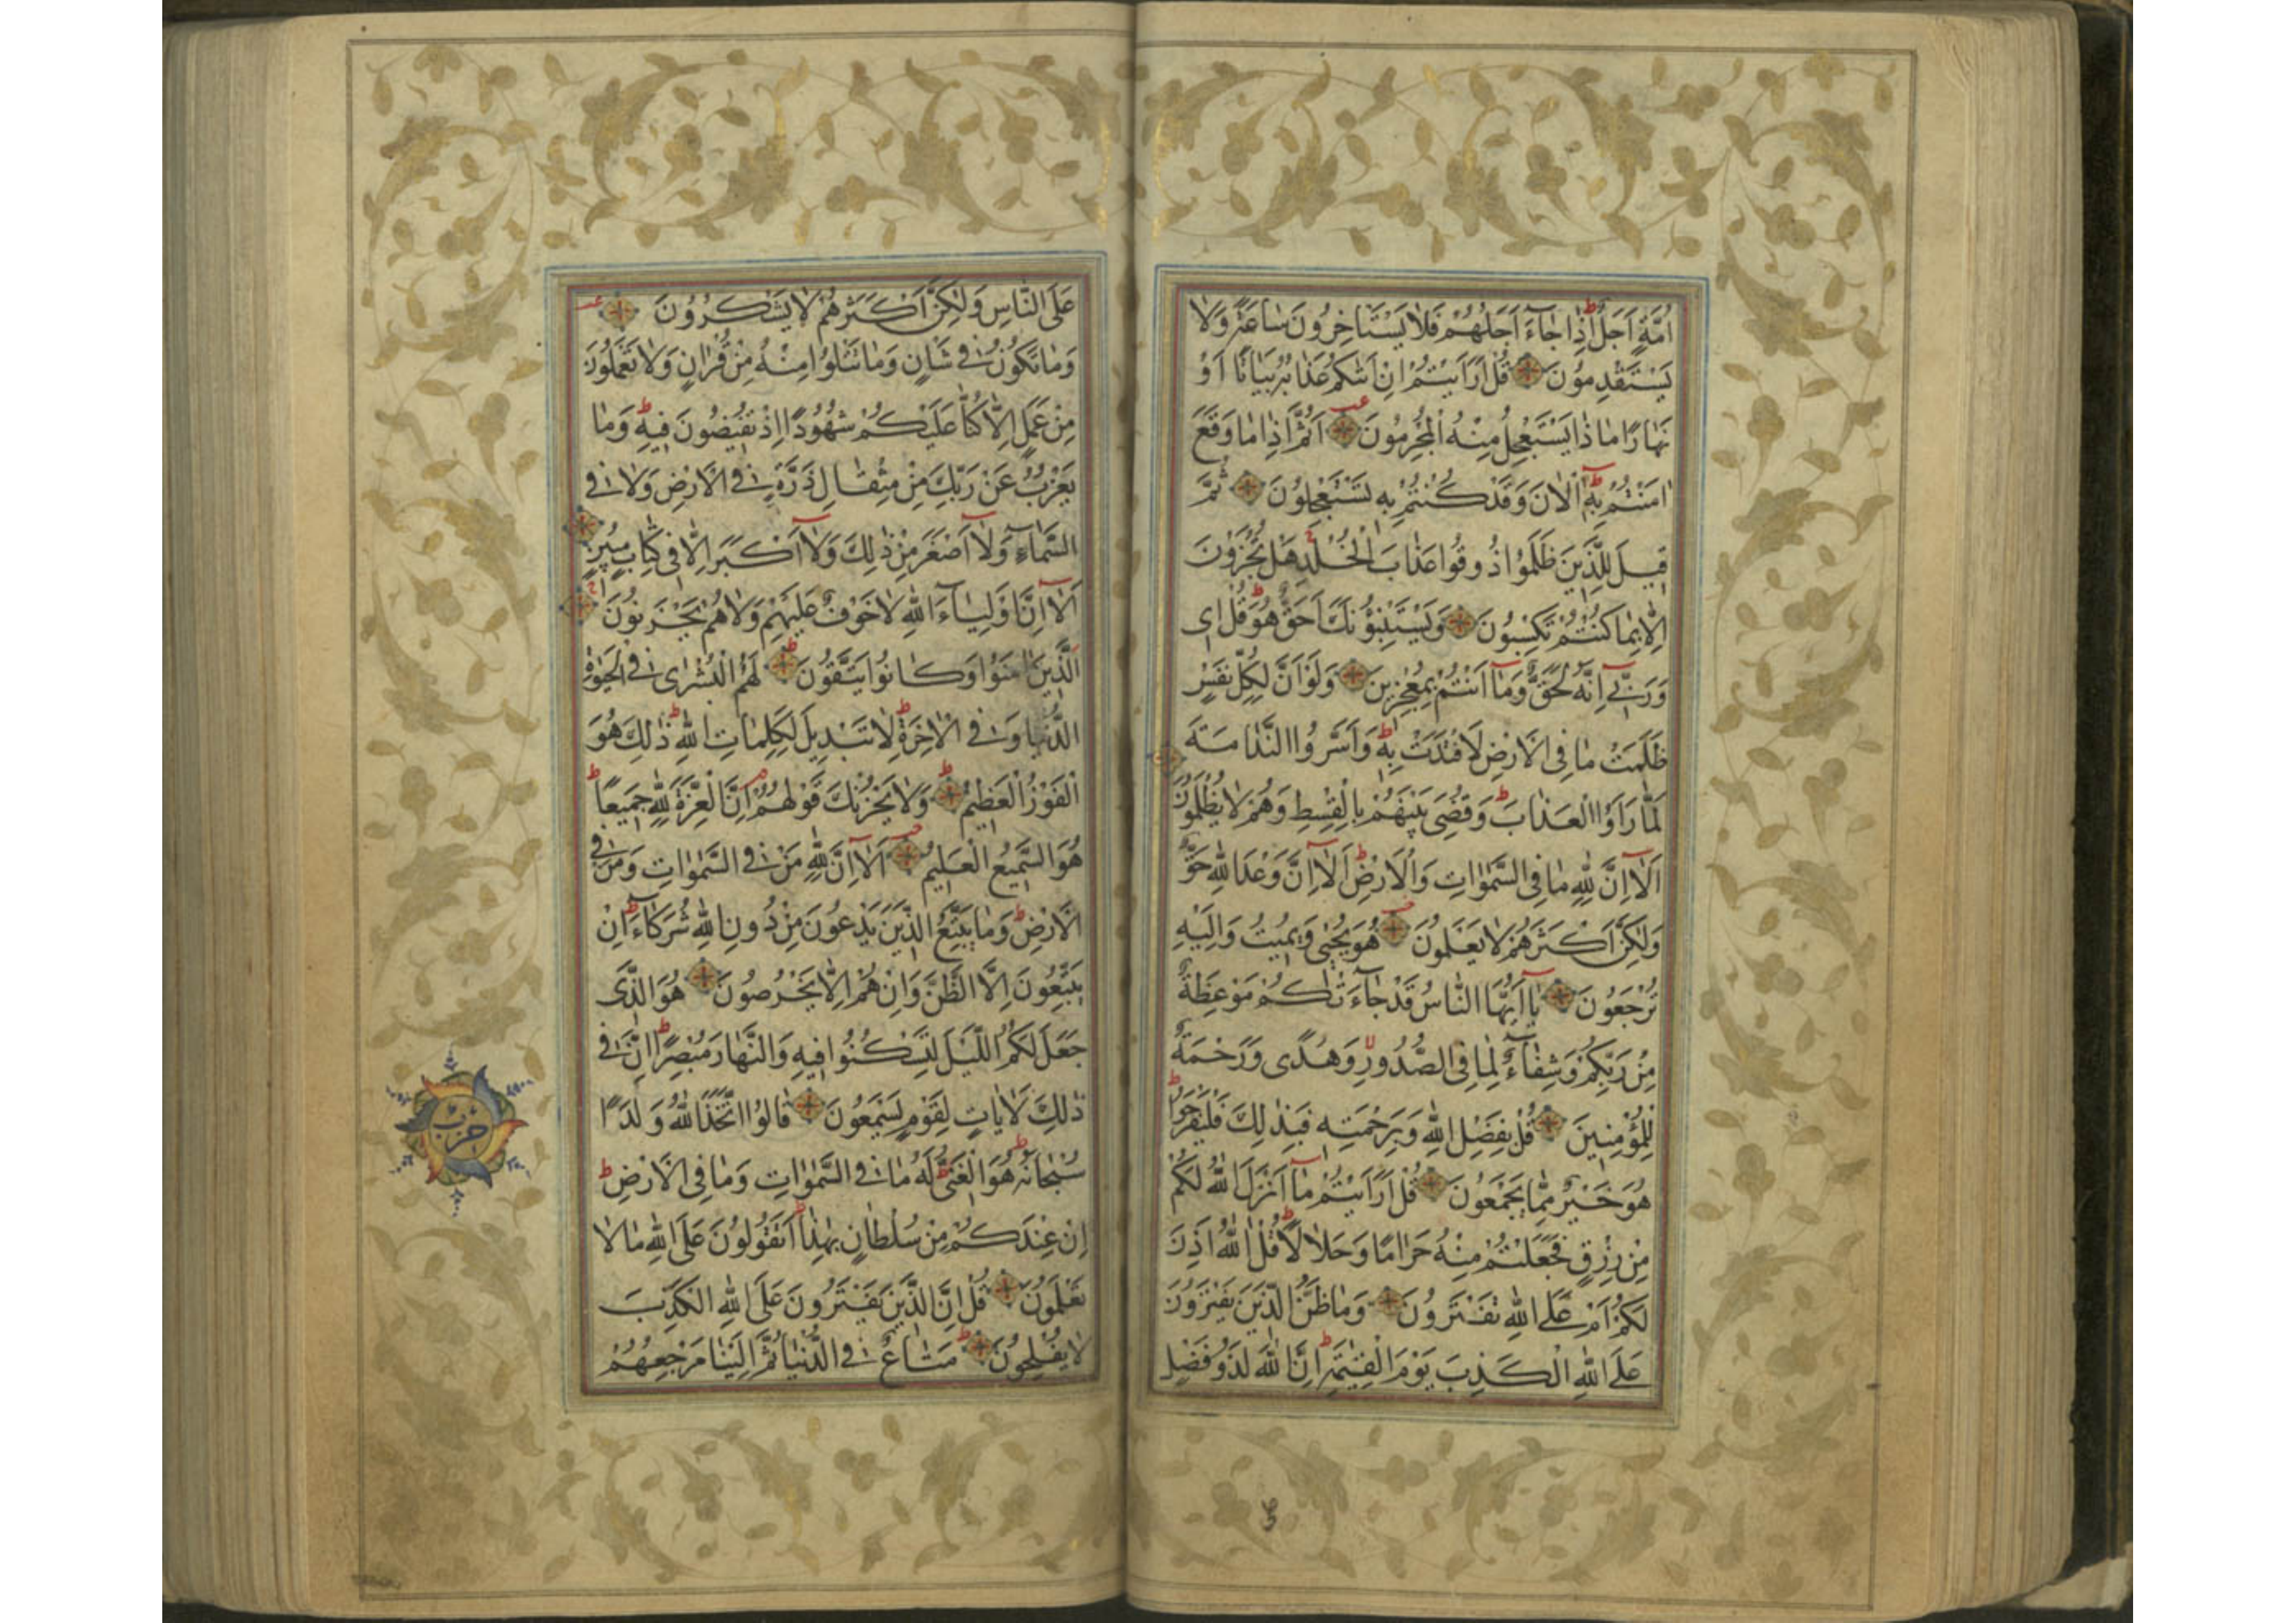 اُمَّةٍ اَجَلٌ اِذَا جَاۤءَ اَجَلُهُمْ فَلَا يَسْتَاْخِرُونَ سَاعَةً وَلَا
يَسْتَقْدِمُونَ قُلْ اَرَاَيْتُمْ اِنْ اَتٰيكُمْ عَذَابُهُ بَيَاتًا اَوْ
نَهَارًا مَاذَا يَسْتَعْجِلُ مِنْهُ الْمُجْرِمُونَ اَثُمَّ اِذَا مَا وَقَعَ
اٰمَنْتُمْ بِهٖ اٰلْاٰنَ وَقَدْ كُنْتُمْ بِهٖ تَسْتَعْجِلُونَ ثُمَّ
قِيلَ لِلَّذِينَ ظَلَمُوا ذُوقُوا عَذَابَ الْخُلْدِ هَلْ تُجْزَوْنَ
اِلَّا بِمَا كُنْتُمْ تَكْسِبُونَ وَيَسْتَنْبِؤُنَكَ اَحَقٌّ هُوَ قُلْ اِى
وَرَبِّىۤ اِنَّهُ لَحَقٌّ وَمَاۤ اَنْتُمْ بِمُعْجِزِينَ وَلَوْ اَنَّ لِكُلِّ نَفْسٍ
ظَلَمَتْ مَا فِى الْاَرْضِ لَافْتَدَتْ بِهٖ وَاَسَرُّوا النَّدَامَةَ
لَمَّا رَاَوُا الْعَذَابَ وَقُضِىَ بَيْنَهُمْ بِالْقِسْطِ وَهُمْ لَا يُظْلَمُونَ
اَلَاۤ اِنَّ لِلّٰهِ مَا فِى السَّمٰوَاتِ وَالْاَرْضِ اَلَاۤ اِنَّ وَعْدَ اللّٰهِ حَقٌّ
وَلٰكِنَّ اَكْثَرَهُمْ لَا يَعْلَمُونَ هُوَ يُحْيِى وَيُمِيتُ وَاِلَيْهِ
تُرْجَعُونَ يَاۤ اَيُّهَا النَّاسُ قَدْ جَاۤءَتْكُمْ مَوْعِظَةٌ
مِنْ رَبِّكُمْ وَشِفَاۤءٌ لِمَا فِى الصُّدُورِ وَهُدًى وَرَحْمَةٌ
لِلْمُؤْمِنِينَ قُلْ بِفَضْلِ اللّٰهِ وَبِرَحْمَتِهٖ فَبِذٰلِكَ فَلْيَفْرَحُوا
هُوَ خَيْرٌ مِمَّا يَجْمَعُونَ قُلْ اَرَاَيْتُمْ مَاۤ اَنْزَلَ اللّٰهُ لَكُمْ
مِنْ رِزْقٍ فَجَعَلْتُمْ مِنْهُ حَرَامًا وَحَلَالًا قُلْ اٰللّٰهُ اَذِنَ
لَكُمْ اَمْ عَلَى اللّٰهِ تَفْتَرُونَ وَمَا ظَنُّ الَّذِينَ يَفْتَرُونَ
عَلَى اللّٰهِ الْكَذِبَ يَوْمَ الْقِيٰمَةِ اِنَّ اللّٰهَ لَذُو فَضْلٍ
عَلَى النَّاسِ وَلٰكِنَّ اَكْثَرَهُمْ لَا يَشْكُرُونَ
وَمَا تَكُونُ فِى شَاْنٍ وَمَا تَتْلُوا مِنْهُ مِنْ قُرْاٰنٍ وَلَا تَعْمَلُونَ
مِنْ عَمَلٍ اِلَّا كُنَّا عَلَيْكُمْ شُهُودًا اِذْ تُفِيضُونَ فِيهِ وَمَا
يَعْزُبُ عَنْ رَبِّكَ مِنْ مِثْقَالِ ذَرَّةٍ فِى الْاَرْضِ وَلَا فِى
السَّمَاۤءِ وَلَاۤ اَصْغَرَ مِنْ ذٰلِكَ وَلَاۤ اَكْبَرَ اِلَّا فِى كِتَابٍ مُبِينٍ
اَلَاۤ اِنَّ اَوْلِيَاۤءَ اللّٰهِ لَا خَوْفٌ عَلَيْهِمْ وَلَا هُمْ يَحْزَنُونَ
اَلَّذِينَ اٰمَنُوا وَكَانُوا يَتَّقُونَ لَهُمُ الْبُشْرٰى فِى الْحَيٰوةِ
الدُّنْيَا وَفِى الْاٰخِرَةِ لَا تَبْدِيلَ لِكَلِمَاتِ اللّٰهِ ذٰلِكَ هُوَ
الْفَوْزُ الْعَظِيمُ وَلَا يَحْزُنْكَ قَوْلُهُمْ اِنَّ الْعِزَّةَ لِلّٰهِ جَمِيعًا
هُوَ السَّمِيعُ الْعَلِيمُ اَلَاۤ اِنَّ لِلّٰهِ مَنْ فِى السَّمٰوَاتِ وَمَنْ فِى
الْاَرْضِ وَمَا يَتَّبِعُ الَّذِينَ يَدْعُونَ مِنْ دُونِ اللّٰهِ شُرَكَاۤءَ اِنْ
يَتَّبِعُونَ اِلَّا الظَّنَّ وَاِنْ هُمْ اِلَّا يَخْرُصُونَ هُوَ الَّذِى
جَعَلَ لَكُمُ اللَّيْلَ لِتَسْكُنُوا فِيهِ وَالنَّهَارَ مُبْصِرًا اِنَّ فِى
ذٰلِكَ لَاٰيَاتٍ لِقَوْمٍ يَسْمَعُونَ قَالُوا اتَّخَذَ اللّٰهُ وَلَدًا
سُبْحَانَهُ هُوَ الْغَنِىُّ لَهُ مَا فِى السَّمٰوَاتِ وَمَا فِى الْاَرْضِ
اِنْ عِنْدَكُمْ مِنْ سُلْطَانٍ بِهٰذَا اَتَقُولُونَ عَلَى اللّٰهِ مَا لَا
تَعْلَمُونَ قُلْ اِنَّ الَّذِينَ يَفْتَرُونَ عَلَى اللّٰهِ الْكَذِبَ
لَا يُفْلِحُونَ مَتَاعٌ فِى الدُّنْيَا ثُمَّ اِلَيْنَا مَرْجِعُهُمْ
حزب